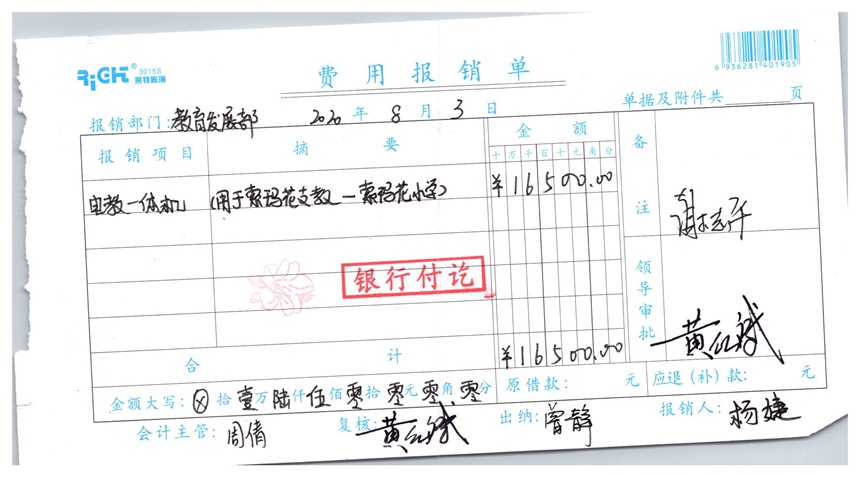 RiGHT® 3015S 莱特账簿
费用报销单
6 936281 401905
报销部门:教育发展部 2020年8月3日 单据及附件共 页
报销项目 摘要 金额 备注
十万千百十元角分
电教一体机 (用于索玛花支教—索玛花小学) ¥16500.00
银行付讫
领导审批 黄红斌
合计 ¥16500.00
金额大写:ⓧ拾壹万陆仟伍佰零拾零元零角零分 原借款: 元 应退(补)款: 元
会计主管:周倩 复核:黄红斌 出纳:曾静 报销人:杨婕